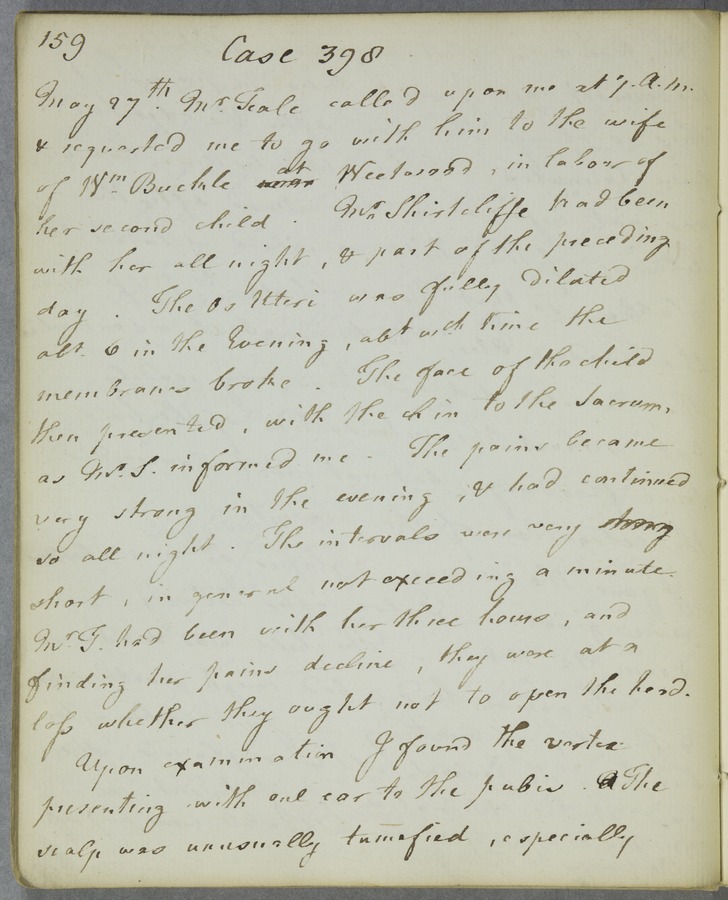 159
Case 398
May 27th. Mr. Teale called upon me at 7. A.m.
& requested me to go with him to the wife
of Wm Buckle at Weetwood, in labour of
her second child. Mrs Shirtcliffe had been
with her all night, & part of the preceding
day. The Os Uteri was fully dilated
abt. 6 in the Evening, abt wch time the
membranes broke. The face of the child
then presented, with the chin to the Sacrum,
as Mrs. S. informed me. The pains became
very strong in the evening, & had continued
so all night. The intervals were very strong
short, in general not exceeding a minute.
Mr T. had been with her three hours, and
finding her pains decline, they were at a
loss whether they ought not to open the head.
Upon examination I found the vertex
presenting with one ear to the pubis. The
scalp was unusually tumefied, especially